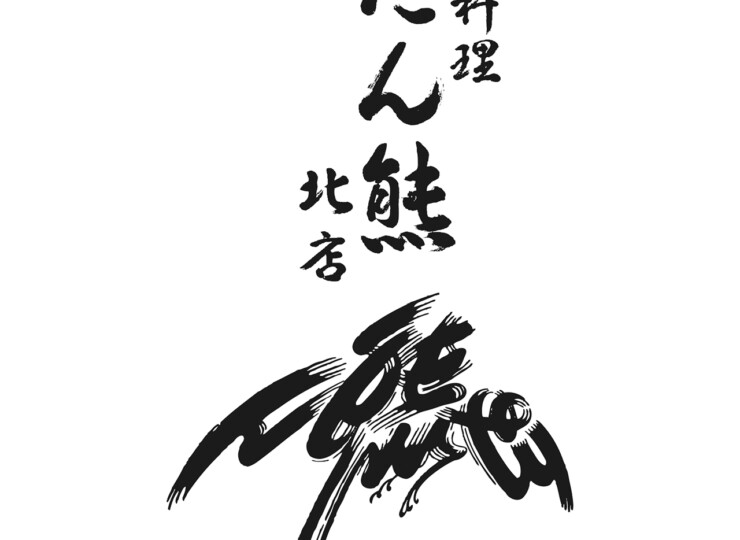 料理
たん熊
北店